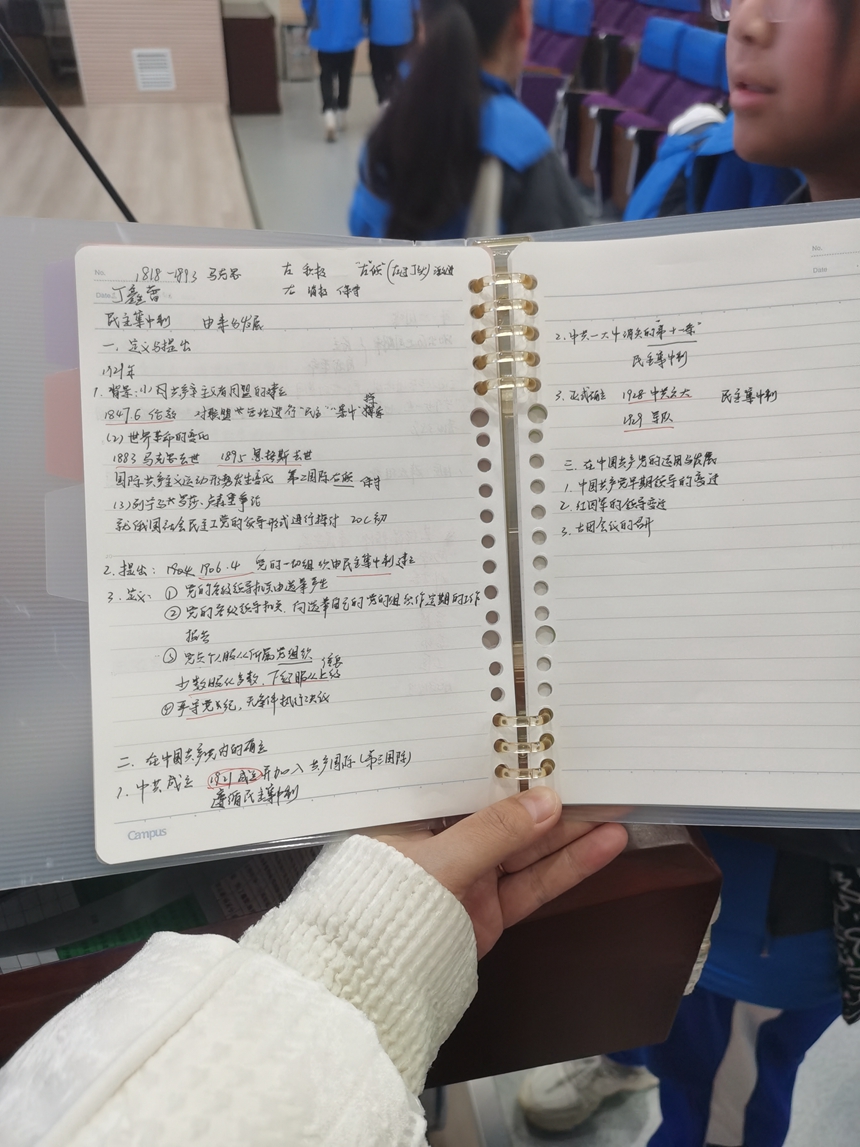 No.
1818-1893 马克思 左 积极 "左"倾 (左过了线) 激进
Date 丁鑫蕾 右 消极 保守
民主集中制 由来与发展
一、定义与提出
1929年
1.背景:(1)同共产主义者同盟的建立
1847.6 伦敦 对联盟 进行"民主""集中"探索
(2)世界革命的变化
1883 马克思去世 1895 恩格斯去世
国际共产主义运动形势发生变化 第二国际右倾 保守
(3)列宁与
就俄国社会民主工党的领导形式进行探讨 20C初
2.提出: 1904 1906.4 党的一切组织由民主集中制建立
3.定义: ① 党的各级领导机关由选举产生
② 党的各级领导机关,向选举自己的党的组织作定期的工作
报告
③ 党员个人服从所属党组织
少数服从多数,下级服从上级
④ 严守党纪,无条件执行决议
二、在中国共产党内的确立
1.中共成立 1921成立并加入共产国际(第三国际)
遵循民主集中制
Campus
No.
Date
2.中共一大中消失的"第十一条"
民主集中制
3.正式确立 1928 中共六大 民主集中制
1929 军队
三、在中国共产党的运用与发展
1.中国共产党早期领导的变迁
2.红四军的领导变迁
3.古田会议的召开